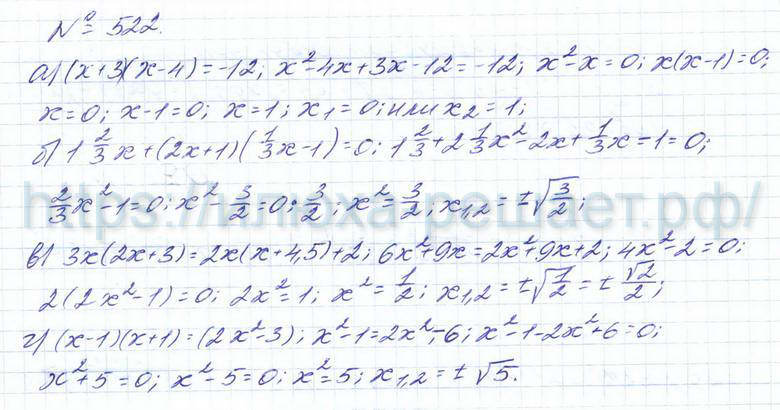 № 522.
а) (x+3)(x-4)=-12; x²-4x+3x-12=-12; x²-x=0; x(x-1)=0;
x=0; x-1=0; x=1; x₁=0; или x₂=1;
б) 1 2/3 x+(2x+1)(1/3 x-1)=0; 1 2/3+2 1/3 x²-2x+1/3 x-1=0;
2/3 x²-1=0; x²-3/2=0; 3/2; x²=3/2; x₁,₂=±√(3/2);
https://илюха-решает.рф/
в) 3x(2x+3)=2x(x+4,5)+2; 6x²+9x=2x²+9x+2; 4x²-2=0;
2(2x²-1)=0; 2x²=1; x²=1/2; x₁,₂=±√(1/2)=±√2/2;
г) (x-1)(x+1)=(2x²-3); x²-1=2x²-6; x²-1-2x²+6=0;
x²+5=0; x²-5=0; x²=5; x₁,₂=±√5.